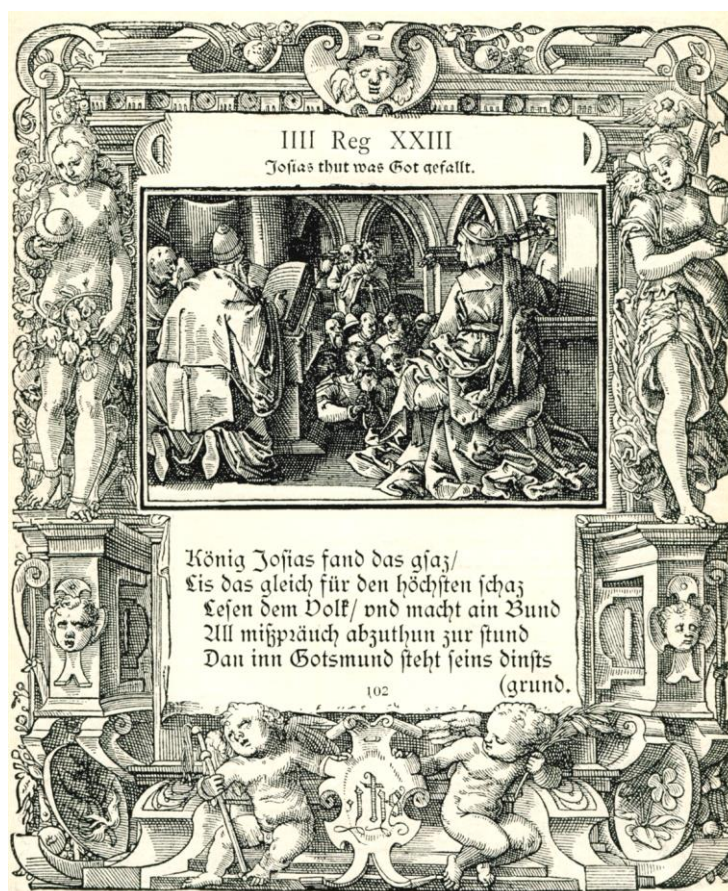 IIII Reg XXIII
Josias thut was Got gefallt.
König Josias fand das gsaz/
Lis das gleich für den höchsten schaz
Lesen dem Volk/ vnd macht ain Bund
All mißpräuch abzuthun zur stund
Dan inn Gotsmund steht seins dinsts
(grund.
102
ihs